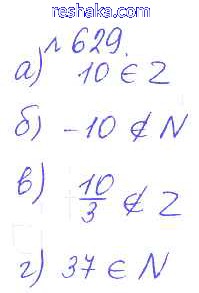 reshaka.com
№629.
а) 10 ∈ Z
б) -10 ∉ N
в) 10/3 ∉ Z
г) 37 ∈ N